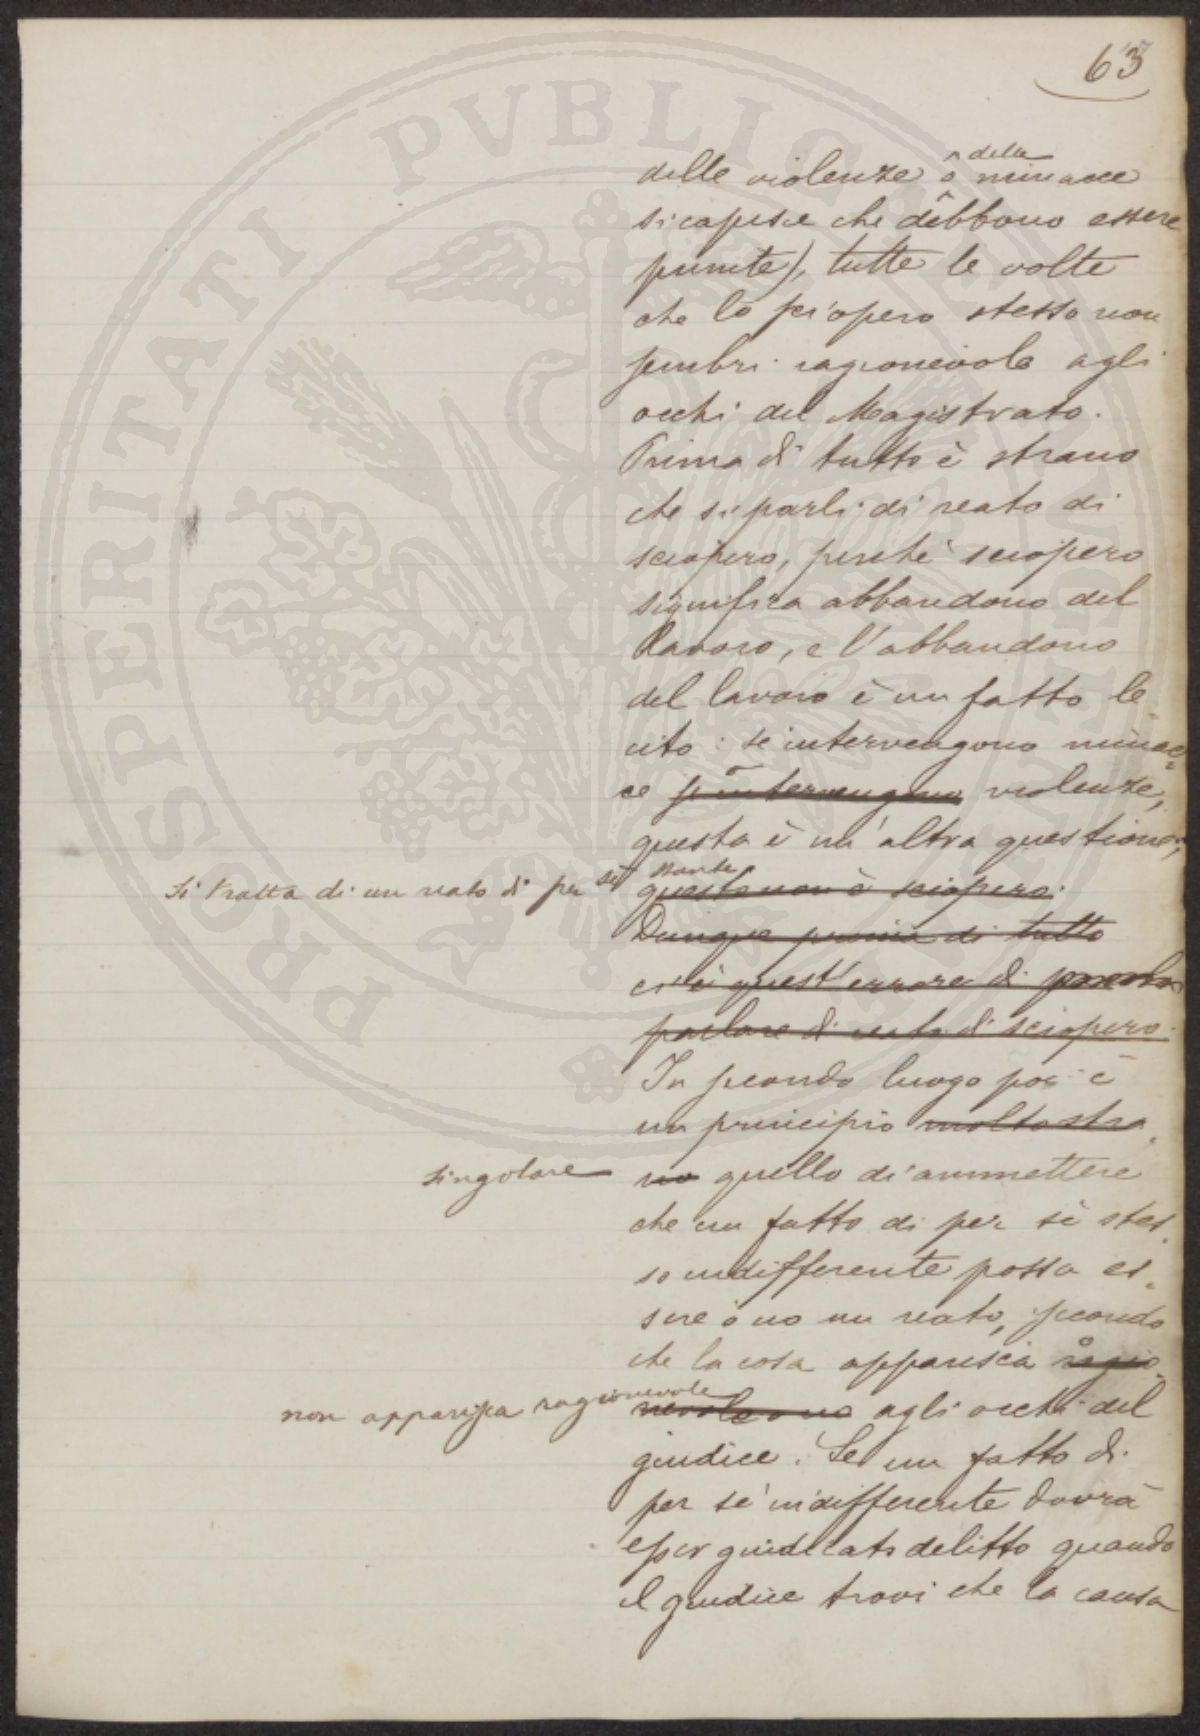 63
PROSPERITATI PVBLICAE AVGENDAE
della
delle violenze o minacce
si capisce che debbono essere
punite), tutte le volte
che lo sciopero stesso non
sembri ragionevole agli
occhi del Magistrato.
Prima di tutto è strano
che si parli di reato di
sciopero, perchè sciopero
significa abbandono del
lavoro, e l'abbandono
del lavoro è un fatto le-
cito: se intervengono minac=
ce s'intervengono violenze,
questa è un'altra questione;
si tratta di un reato di per sè stante
questo non è sciopero.
Dunque prima di tutto
c'è quest'errore di
parlare di reato di sciopero.
In secondo luogo poi è
un principio molto stra-
singolare
no quello di ammettere
che un fatto di per sè stes-
so indifferente possa es-
sere o no un reato, secondo
che la cosa apparisca o ragio-
non apparisca ragionevole
nevole o no agli occhi del
giudice. Se un fatto di
per sè indifferente dovrà
esser giudicato delitto quando
il giudice trovi che la causa